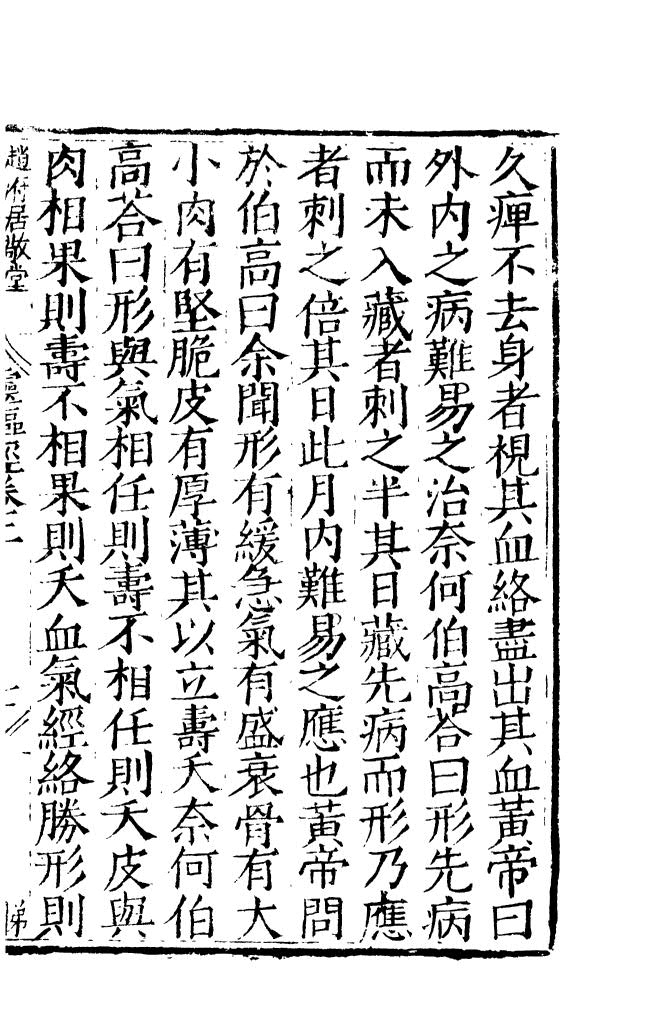 久痺不去身者視其血絡盡出其血黃帝曰
外内之病難易之治奈何伯高荅曰形先病
而未入藏者刺之半其日藏先病而形乃應
者刺之倍其日此月内難易之應也黃帝問
於伯高曰余聞形有緩急氣有盛衰骨有大
小肉有堅脆皮有厚薄其以立壽夭奈何伯
高荅曰形與氣相任則壽不相任則夭皮與
肉相果則壽不相果則夭血氣經絡勝形則
趙府居敬堂 靈樞經卷二